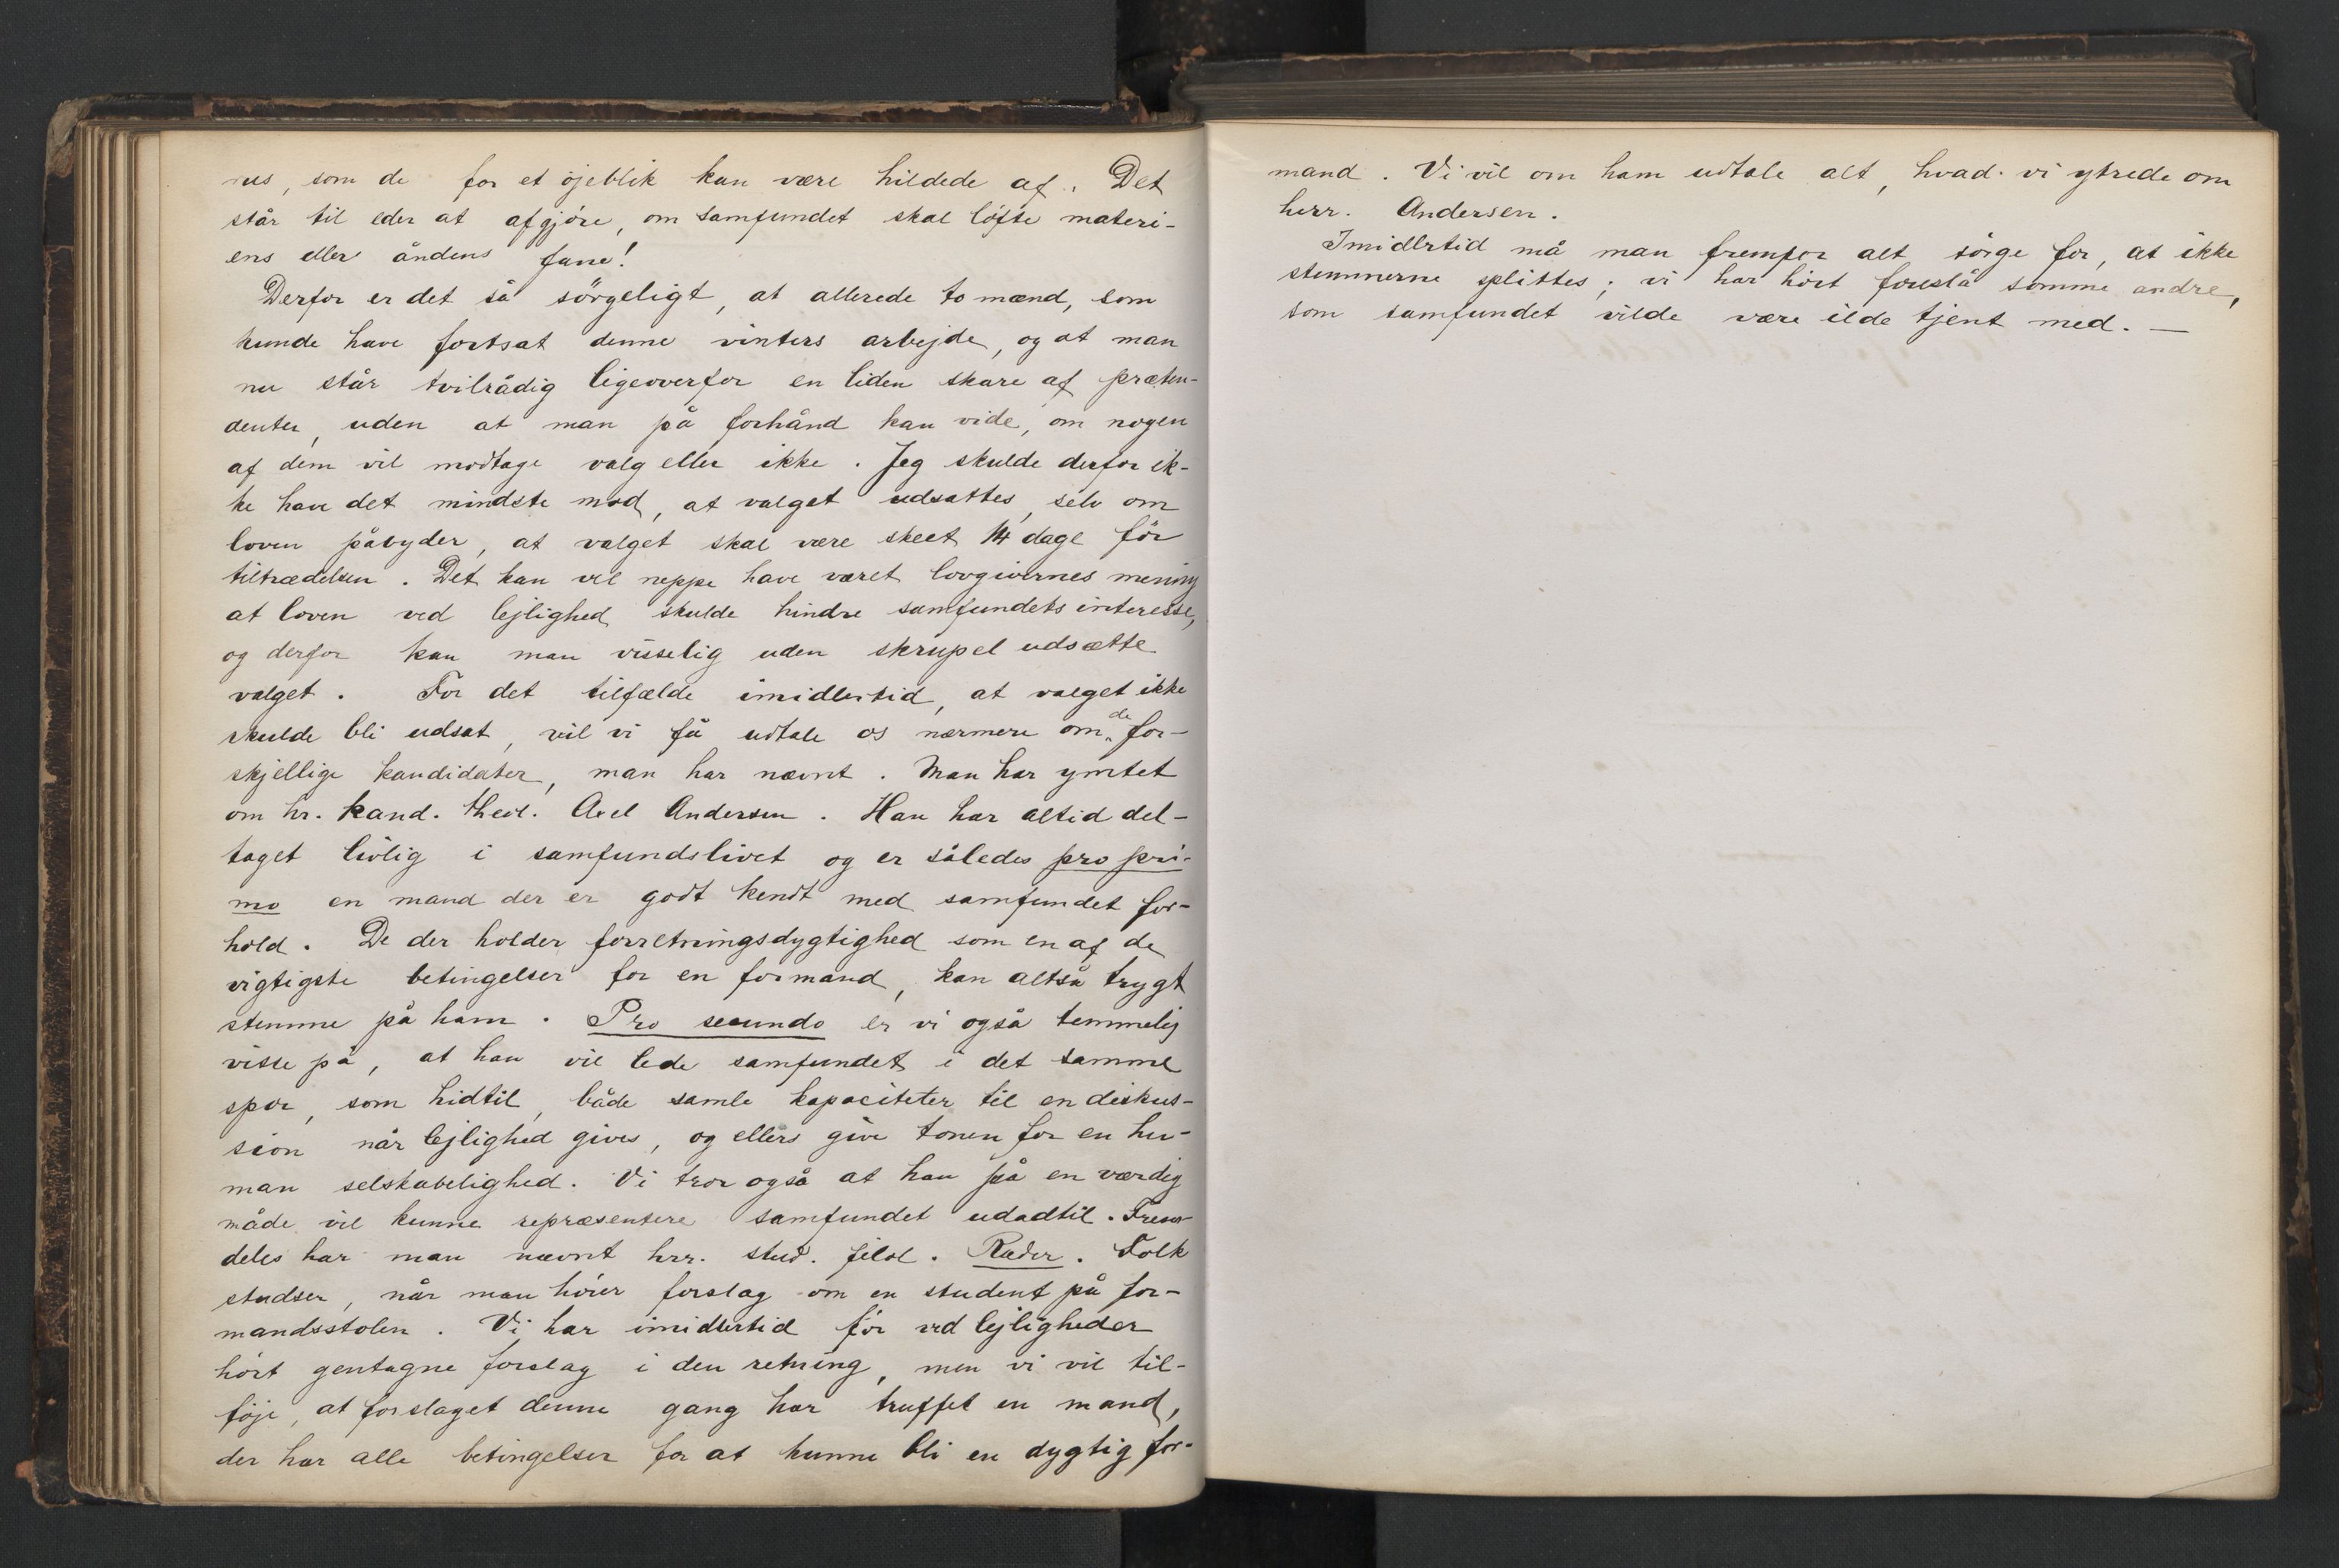 rus, som de for et øjeblik kan være hildede af. Det
står til eder at afgjöre, om samfundet skal löfte materi-
ens eller åndens fane!
Derfor er det så sörgeligt, at allerede to mænd, som
kunde have fortsat denne vinters arbejde, og at man
nu står tvilrådig ligeoverfor en liden skare af præten-
denter, uden at man på forhånd kan vide, om nogen
af dem vil modtage valg eller ikke. Jeg skulde derfor ik-
ke have det mindste mod, at valget udsattes, selv om
loven påbyder, at valget skal være skeet 14 dage för
tiltrædelsen. Det kan vel neppe have været lovgivernes mening
at loven ved lejlighed skulde hindre samfundets interesse,
og derfor kan man visselig uden skrupel udsætte
valget. For det tilfælde imidlertid, at valget ikke
skulde bli udsat, vil vi få udtale os nærmere om de for-
skjellige kandidater, man har nævnt. Man har ymtet
om hr. kand. theol. Axel Andersen. Han har altid del-
taget livlig i samfundslivet og er således pro pri-
mo en mand der er godt kendt med samfundet for-
hold. De der holder forretningsdygtighed som en af de
vigtigste betingelser for en formand, kan altså trygt
stemme på ham. Pro secundo er vi også temmelig
visse på, at han vil lede samfundet i det samme
spor, som hidtil, både samle kapaciteter til en diskus-
sion når lejlighed gives, og ellers give tonen for en hu-
man selskabelighed. Vi tror også at han på en værdig
måde vil kunne repræsentere samfundet udadtil. Frem-
deles har man nævnt hrr. stud. filol. Ræder. Folk
studser, når man hörer forslag om en student på for-
mandsstolen. Vi har imidlertid för ved lejligheder
hört gentagne forslag i den retning, men vi vil til-
föje, at forslaget denne gang har truffet en mand,
der har alle betingelser for at kunne bli en dygtig for-
mand. Vi vil om ham udtale alt, hvad vi ytrede om
herr. Andersen.
Imidlrtid må man fremfor alt sörge for, at ikke
stemmerne splittes; vi har hört foreslå somme andre,
som samfundet vilde være ilde tjent med. —